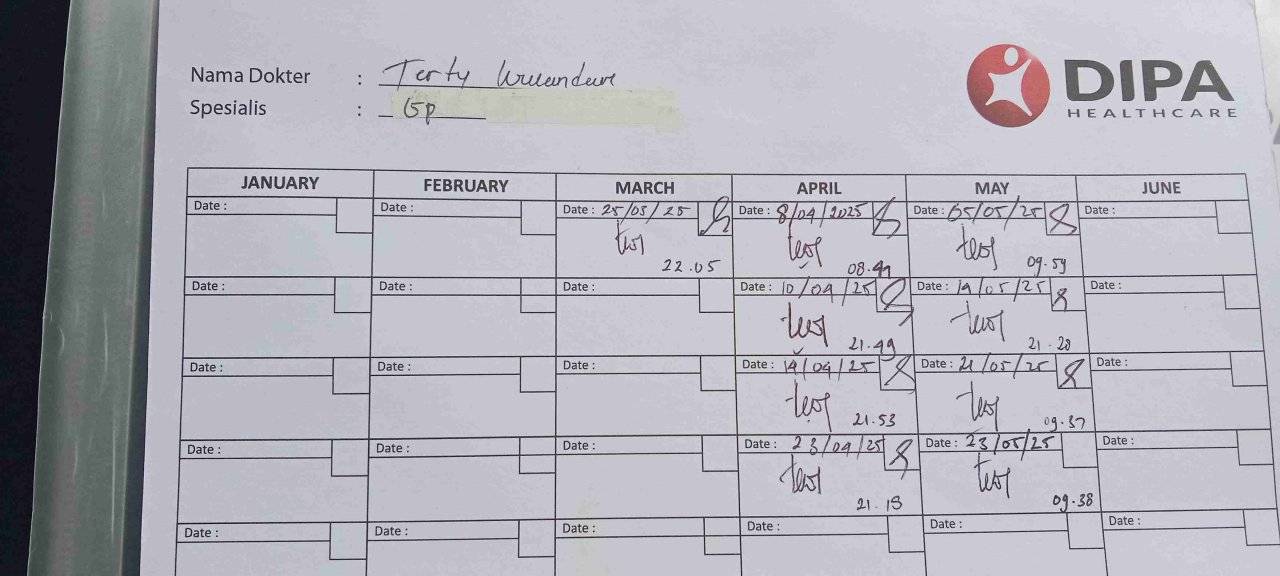 Nama Dokter : Terty
Spesialis : Gp
DIPA
HEALTHCARE
JANUARY FEBRUARY MARCH APRIL MAY JUNE
Date : Date : Date : 25/03/25 Date : 8/04/2025 Date : 05/05/25 Date :
22.05 08.49 09.59
Date : Date : Date : Date : 10/04/25 Date : 19/05/25 Date :
21.49 21.28
Date : Date : Date : Date : 14/04/25 Date : 21/05/25 Date :
21.53 09.37
Date : Date : Date : Date : 23/04/25 Date : 23/05/25 Date :
21.15 09.38
Date : Date : Date : Date : Date : Date :